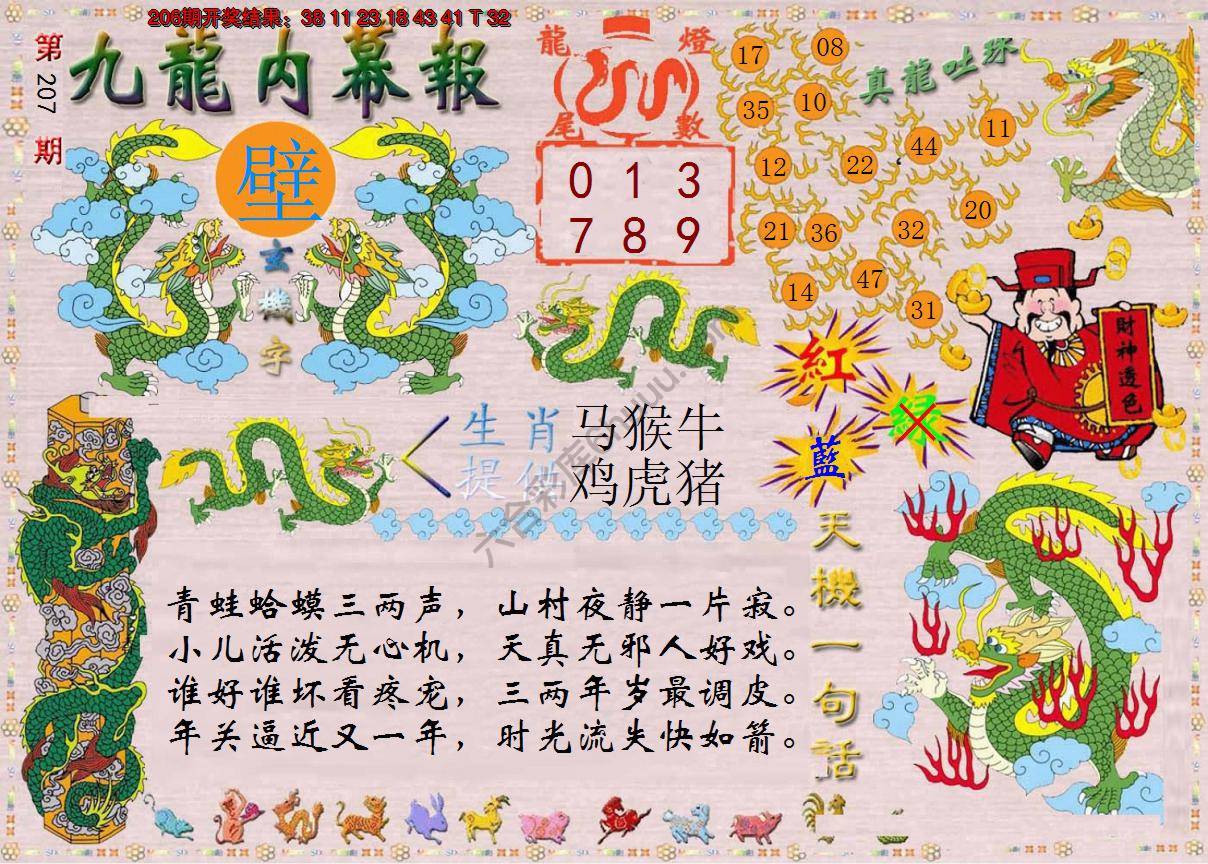 206期开奖结果：38 11 23 18 43 41 T 32
第207期
九龍内幕報
壁
玄機字
龍燈
尾數
0 1 3
7 8 9
真龍吐珠
17 08
35 10
12 22 44 11
21 36 32 20
14 47 31
財神透色
紅
绿
藍
生肖 马猴牛
提供 鸡虎猪
天機一句話
青蛙蛤蟆三两声，山村夜静一片寂。
小儿活泼无心机，天真无邪人好戏。
谁好谁坏看疼宠，三两年岁最调皮。
年关逼近又一年，时光流失快如箭。